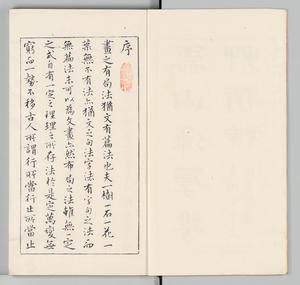 序
畫之有局法猶文有篇法也夫一樹一石一花一
葉無不有法亦猶文之句法字法有字句之法而
無篇法未可以為文畫亦然布局之法雖無一定
之式自有一定之理理之所存法於是定萬變無
窮而一勢不移古人所謂行所當行止所當止